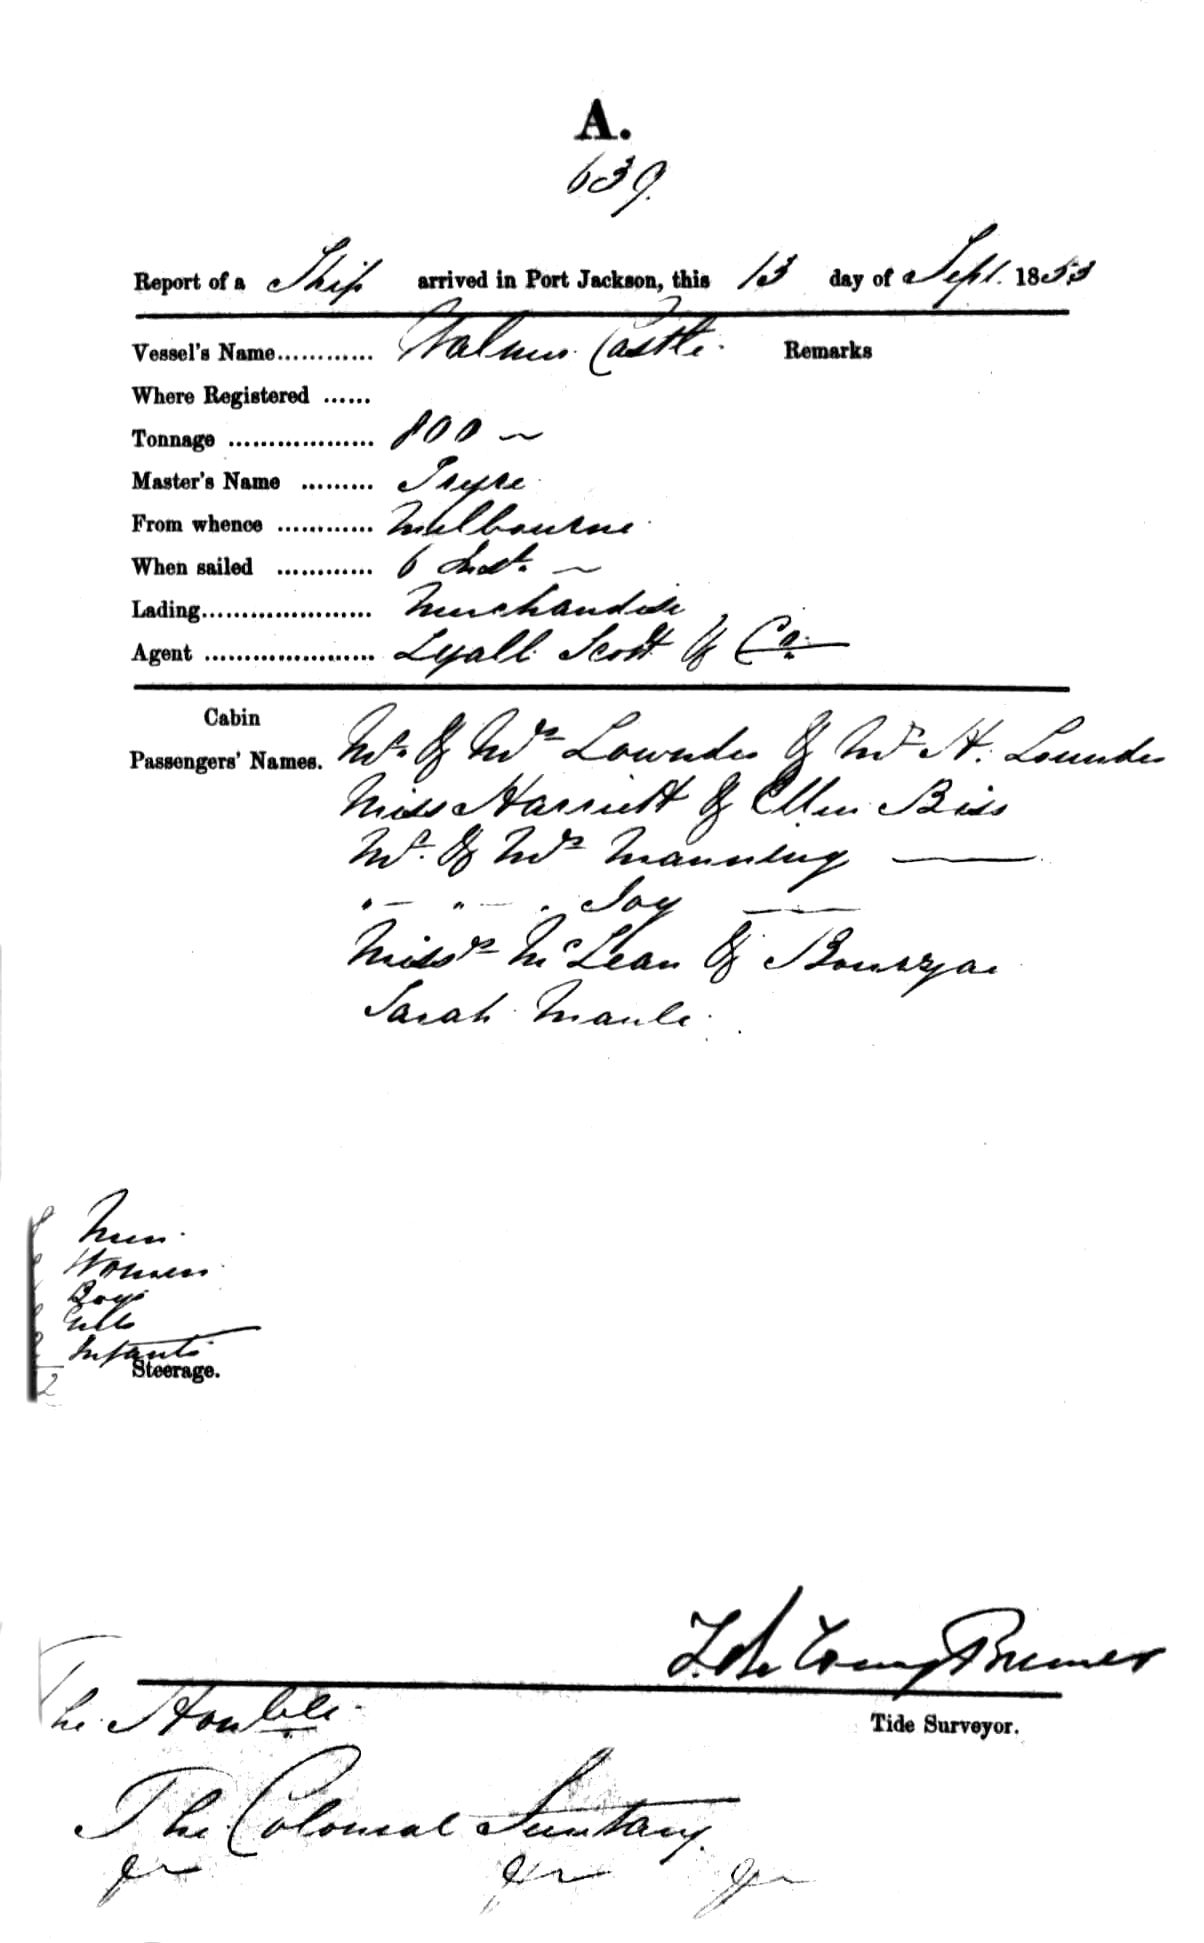 A.
639.
Report of a Ship arrived in Port Jackson, this 13 day of Sept. 1853
Vessel's Name............ Walmer Castle. Remarks
Where Registered ......
Tonnage .................. 800
Master's Name .........
From whence ............ Melbourne
When sailed ............ 6 Inst.
Lading..................... Merchandise
Agent ..................... Lyall Scott & Co.
Cabin
Passengers' Names. Mr. & Mrs Lowndes & Mr H. Lowndes
Miss Harriett & Ellen Biss
Mr. & Mrs Manning
" " " Joy
McLean &
Sarah Maule
Men
Women
Boys
Girls
Infants
Steerage.
Tide Surveyor.
The Honble.
The Colonial Secretary
&c &c &c